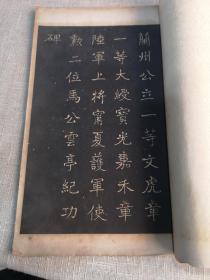 蘭州公立一等文虎章
一等大綬寶光嘉禾章
陸軍上將甯夏護軍使
勲二位馬公雲亭紀功
碑